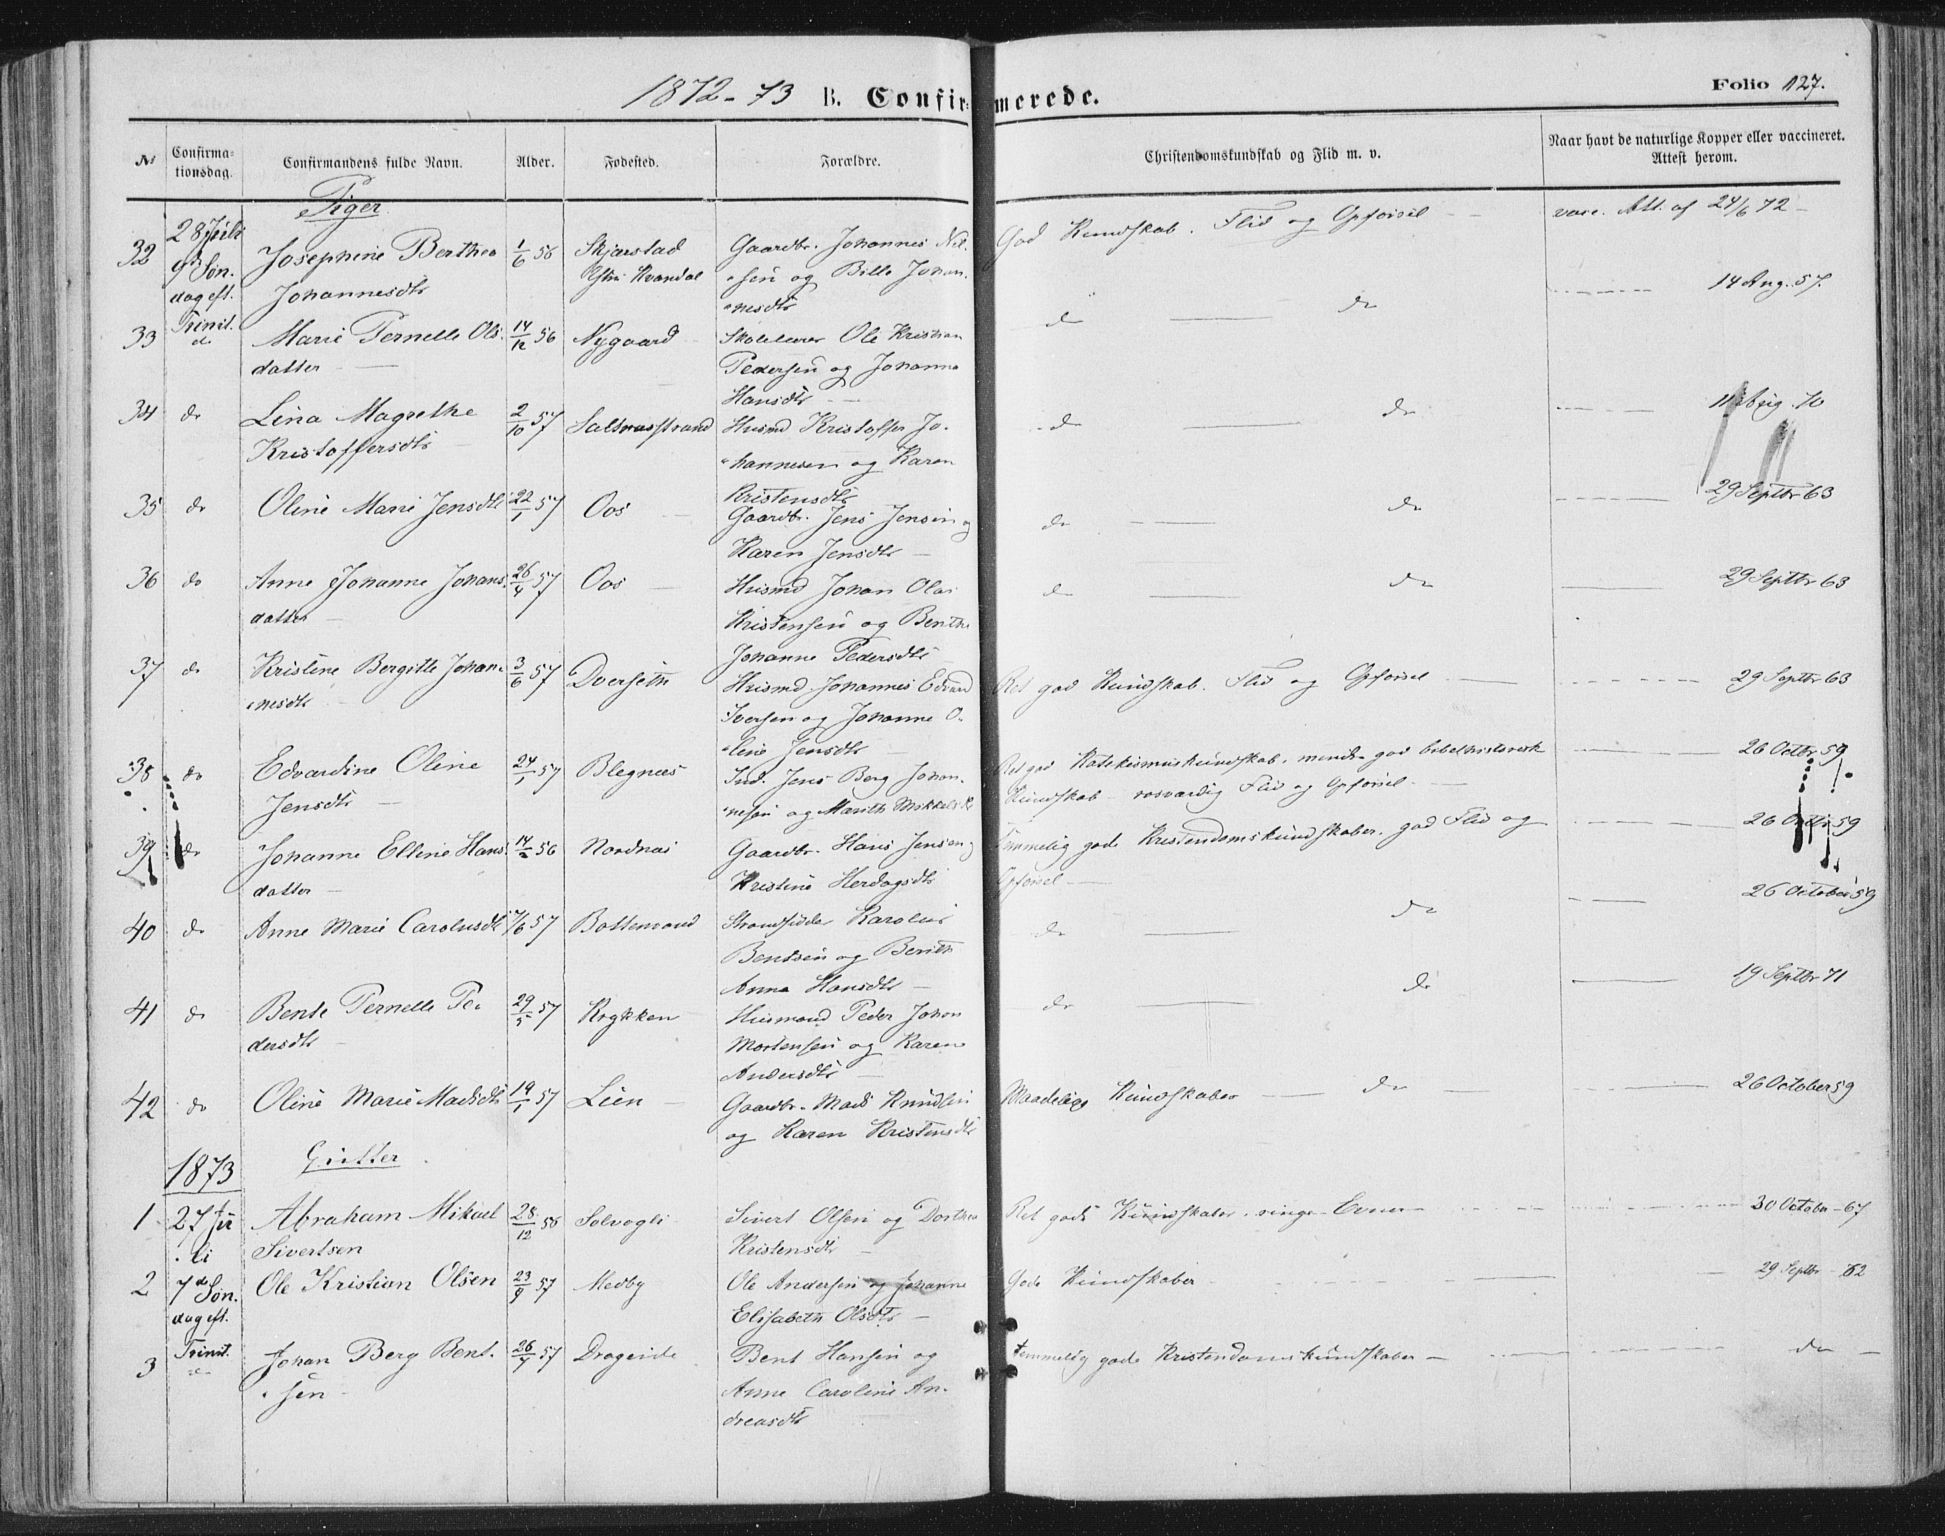 1872-73 B. Confirmerede. Folio 127.
No Confirmationsdag. Confirmandens fulde Navn. Alder. Fødested. Forældre. Christendomskundskab og Flid m. v. Naar havt de naturlige Kopper eller vaccineret. Attest herom.
Piger
32 28 Juli Josephine Berthea 1/6 56 Skjærstad Gaardbr. Johannes Nil- God Kundskab. Flid og Opførsel vacc. Att. af 24/6 72
9de Søn- Johannesdtr Kvandal sen og Johan-
dag eft. nesdtr
Trinit.
33 do Marie Pernelle Ols- 14/12 56 Nygaard Skolelærer Ole Kristian do do 14 Aug. 57.
datter Pedersen og Johanna
Hansdtr
34 do Lina Magrethe 2/10 57 Saltnesstrand Husmd Kristoffer Jo- do do
Kristoffersdtr hannesen og Karen
Kristensdtr
35 do Oline Marie Jensdtr 22/1 57 Oos Gaardbr. Jens Jensen og do do 29 Septbr 63
Karen Jensdtr
36 do Anne Johanne Johans- 26/4 57 Oos Husmd Johan Olai do do 29 Septbr 63
datter Kristensen og Benthe
Johanne Pedersdtr
37 do Kristine Bergitte Johan- 3/6 57 Dverseth Husmd Johannes Edvard Ret god Kundskab. Flid og Opførsel 29 Septbr 63
nesdtr Iversen og Johanne O-
line Jensdtr
38 do Edvardine Oline 24/1 57 Blegnæs Ind. Jens Berg Johan- Ret god Katekismuskundskab, mindre god bibelhistorisk 26 Octbr 59
Jensdtr nesen og Marith Mikkelsdtr Kundskab - rosværdig Flid og Opførsel
39 do Johanne Elline Hans- 56 Nordnæs Gaardbr. Hans Jensen og Temmelig gode Kristendomskundskaber. god Flid og 26 Octbr 59
datter Kristine Herdagsdtr Opførsel
40 do Anne Marie Carolusdtr 7/6 57 Bottenvand Strandsidder Karolus do do 26 October 59
Bentsen og Berith
Anna Hansdtr
41 do Bente Pernelle Pe- 29/5 57 Røgkken Husmand Peder Johan do do 19 Septbr 71
dersdtr Mortensen og Karen
Andersdtr
42 do Oline Marie Madsdtr 19/1 57 Lien Gaardbr. Mads Knudsen Maadelige Kundskaber do 26 October 59
og Karen Kristensdtr
1873 Gutter
1 27 Ju- Abraham Mikael 28/12 56 Solvogli Sivert Olsen og Dorthea Ret gode Kundskaber. ringe Evner 30 October 67
li Sivertsen Kristensdtr
2 7de Søn- Ole Kristian Olsen 23/9 57 Medby Ole Andersen og Johanne Gode Kundskaber 29 Septbr 62
dag eft. Elisabeth Olsdtr
Trinit.
3 do Johan Berg Bent- 26/7 57 Drageide Bent Hansen og temmelig gode Kristendomskundskaber do
sen Anne Caroline An-
dreasdtr